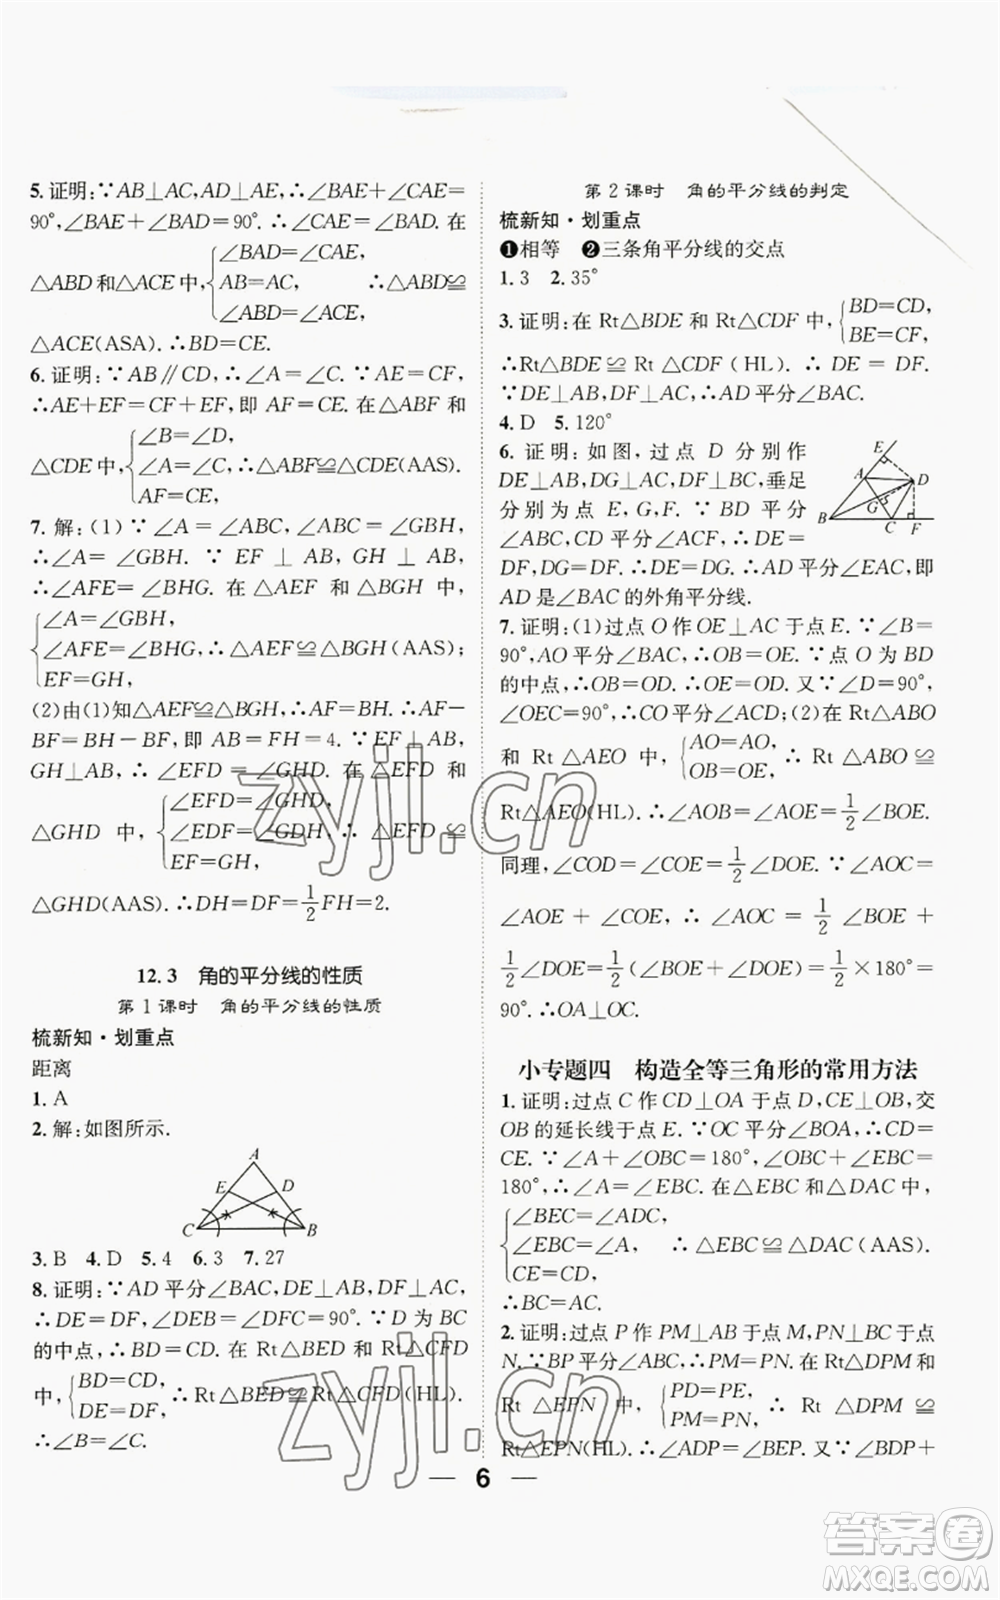 5.证明:∵AB⊥AC,AD⊥AE,∴∠BAE+∠CAE=
90°,∠BAE+∠BAD=90°.∴∠CAE=∠BAD. 在
△ABD和△ACE中,{∠BAD=∠CAE,
AB=AC,
∠ABD=∠ACE,
∴△ABD≌
△ACE(ASA).∴BD=CE.
6.证明:∵AB∥CD,∴∠A=∠C.∵AE=CF,
∴AE+EF=CF+EF,即 AF=CE. 在△ABF 和
△CDE中,{∠B=∠D,
∠A=∠C,
AF=CE,
∴△ABF≌△CDE(AAS).
7.解:(1)∵∠A=∠ABC,∠ABC=∠GBH,
∴∠A=∠GBH. ∵ EF⊥AB,GH⊥AB,
∴∠AFE=∠BHG. 在△AEF 和△BGH 中,
{∠A=∠GBH,
∠AFE=∠BHG,
EF=GH,
∴△AEF≌△BGH(AAS);
(2)由(1)知△AEF≌△BGH,∴AF=BH.∴AF−
BF=BH−BF,即 AB=FH=4. ∵EF⊥AB,
GH⊥AB,∴∠EFD=∠GHD. 在△EFD 和
△GHD 中,{∠EFD=∠GHD,
∠EDF=∠GDH,
EF=GH,
∴△EFD≌
△GHD(AAS).∴DH=DF=1/2FH=2.
12.3 角的平分线的性质
第1课时 角的平分线的性质
梳新知·划重点
距离
1.A
2.解:如图所示.
A
E
D
C
B
3.B 4.D 5.4 6.3 7.27
8.证明:∵AD平分∠BAC,DE⊥AB,DF⊥AC,
∴DE=DF,∠DEB=∠DFC=90°.∵D为BC
的中点,∴BD=CD. 在 Rt△BED 和 Rt△CFD
中,{BD=CD,
DE=DF,
∴Rt△BED≌Rt△CFD(HL).
∴∠B=∠C.
第2课时 角的平分线的判定
梳新知·划重点
❶相等 ❷三条角平分线的交点
1.3 2.35°
3.证明:在 Rt△BDE 和 Rt△CDF 中,{BD=CD,
BE=CF,
∴Rt△BDE≌Rt△CDF(HL).∴DE=DF.
∵DE⊥AB,DF⊥AC,∴AD平分∠BAC.
4.D 5.120°
6.证明:如图,过点 D 分别作
DE⊥AB,DG⊥AC,DF⊥BC,垂足
分别为点 E,G,F. ∵ BD 平分
∠ABC,CD平分∠ACF,∴DE=
DF,DG=DF.∴DE=DG.∴AD平分∠EAC,即
AD是∠BAC的外角平分线.
E
A
D
G
B
C
F
7.证明:(1)过点O作OE⊥AC于点E.∵∠B=
90°,AO平分∠BAC,∴OB=OE.∵点O为BD
的中点,∴OB=OD.∴OE=OD.又∵∠D=90°,
∠OEC=90°,∴CO平分∠ACD;(2)在Rt△ABO
和 Rt△AEO 中,{AO=AO,
OB=OE,
∴Rt△ABO≌
Rt△AEO(HL).∴∠AOB=∠AOE=1/2∠BOE.
同理,∠COD=∠COE=1/2∠DOE.∵∠AOC=
∠AOE+∠COE,∴∠AOC=1/2∠BOE+
1/2∠DOE=1/2(∠BOE+∠DOE)=1/2×180°=
90°.∴OA⊥OC.
小专题四 构造全等三角形的常用方法
1.证明:过点C作CD⊥OA于点D,CE⊥OB,交
OB的延长线于点E.∵OC平分∠BOA,∴CD=
CE.∵∠A+∠OBC=180°,∠OBC+∠EBC=
180°,∴∠A=∠EBC. 在△EBC和△DAC中,
{∠BEC=∠ADC,
∠EBC=∠A,
CE=CD,
∴△EBC≌△DAC(AAS).
∴BC=AC.
2.证明:过点P作PM⊥AB于点M,PN⊥BE于点
N.∵BP平分∠ABC,∴PM=PN.在Rt△DPM和
Rt△EPN 中,{PD=PE,
PM=PN,
∴Rt△DPM≌
Rt△EPN(HL).∴∠ADP=∠BEP.又∵∠BDP+
6
zyjl.cn
zyjl.cn
答案卷
MXQE.COM